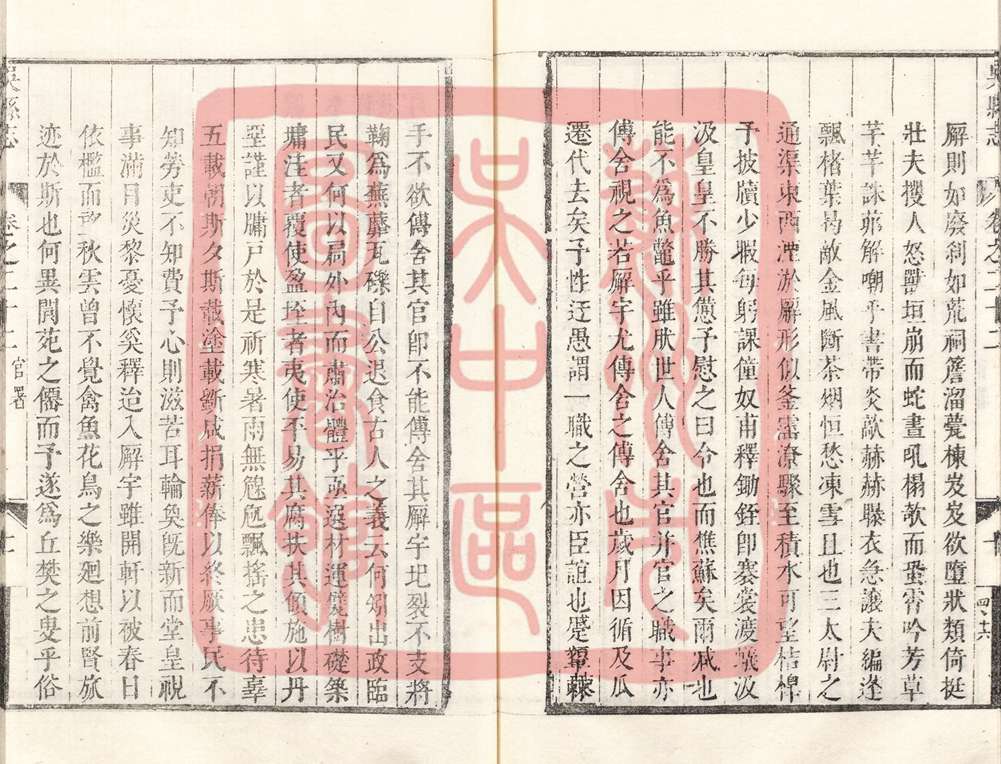 吳縣志 卷之二十二
廨則如廢刹如荒祠簷溜甍棟岌岌欲墮狀類倚挺
壯夫攫人怒獸垣崩而蛇晝吼榻欹而蛩宵吟芳草
芊芊誅茆解嘲乎書帶炎歊赫赫曝衣急讓夫編蓬
飄楮葉曷敵金風斷茶烟恒愁凍雪且也三太尉之
通渠東西湮於廨形似釜霪潦驟至積水可望桔橰
予披牘少暇每躬課僮奴甫釋鋤銍卽褰裳渡汲
汲皇皇不勝其憊予慰之曰今也而樵蘇矣雨也
能不爲魚鼈乎雖肰世人傳舍其官并官之職事亦
傳舍視之若廨宇尤傳舍之傳舍也歲月因循及瓜
還代去矣予性迂愚謂一職之營亦臣誼也蹙
手不欲傳舍其官卽不能傳舍其廨宇圯裂不支將
鞠爲蕪蘼瓦礫自公退食古人之義云何矧出政臨
民又何以扃外內而肅治體乎亟選材運甓樹礎築
墉注者覆使盈挃者夷使平易其腐扶其傾施以丹
堊謹以牗戸於是祈寒暑雨無飄搖之患待辜
五載朝斯夕斯載塗載斲咸捐薪俸以終厥事民不
知勞吏不知費予心則滋苦耳輪奐旣新而堂皇視
事滿目災黎憂懷奚釋迨入廨宇雖開軒以被春日
依檻而歌秋雲曾不覺禽魚花鳥之樂廻想前賢旅
迹於斯也何異閬苑之僊而予遂爲丘樊之叟乎俗
吳縣志 卷之二十二 官署
蘇州市
吳中區
圖書館